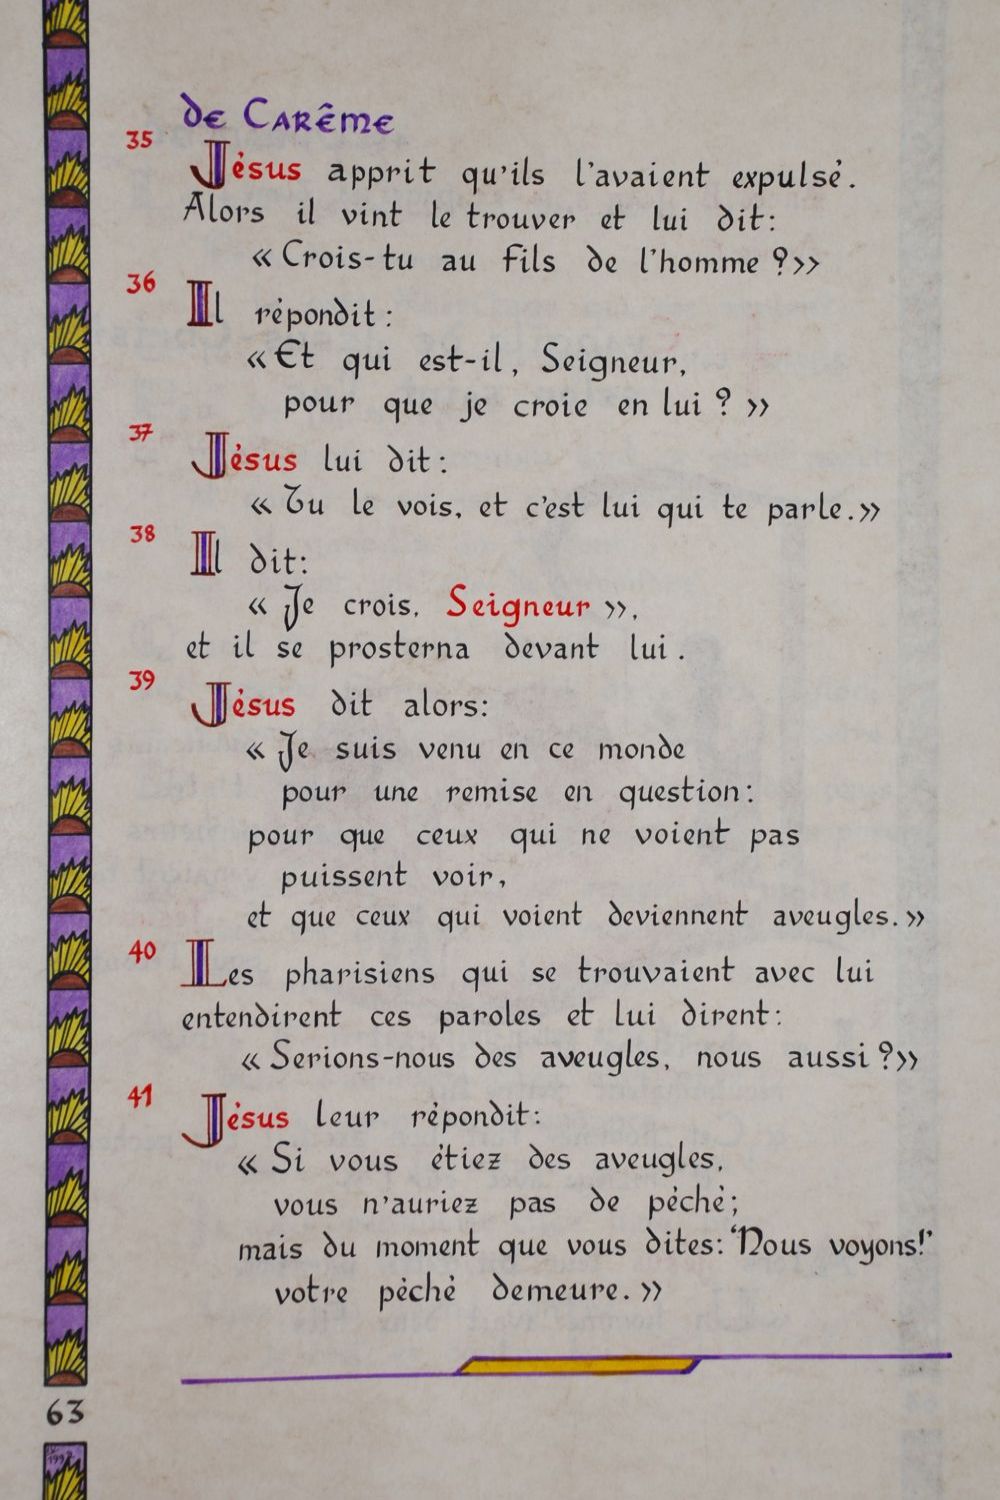 de Carême
35
Jésus apprit qu'ils l'avaient expulsé.
Alors il vint le trouver et lui dit:
« Crois-tu au fils de l'homme ?»
36
Il répondit:
« Et qui est-il, Seigneur,
pour que je croie en lui ? »
37
Jésus lui dit:
« Tu le vois, et c'est lui qui te parle.»
38
Il dit:
« Je crois, Seigneur »,
et il se prosterna devant lui.
39
Jésus dit alors:
« Je suis venu en ce monde
pour une remise en question:
pour que ceux qui ne voient pas
puissent voir,
et que ceux qui voient deviennent aveugles.»
40
Les pharisiens qui se trouvaient avec lui
entendirent ces paroles et lui dirent:
« Serions-nous des aveugles, nous aussi ?»
41
Jésus leur répondit:
« Si vous étiez des aveugles,
vous n'auriez pas de péché;
mais du moment que vous dites: 'Nous voyons!'
votre péché demeure. »
63